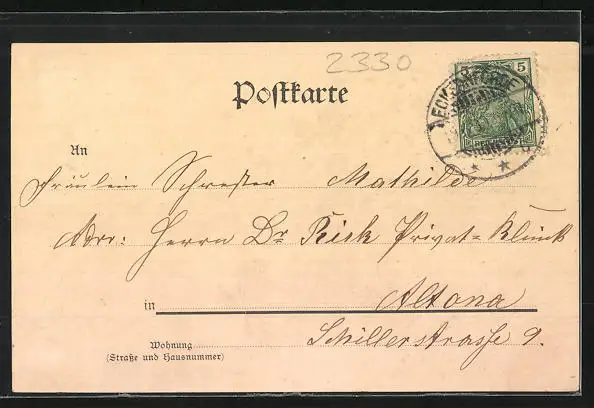 2330
Postkarte
5
ECKERNFÖRDE
An
Fräulein Schwester Mathilde
Adr: Herrn Dr Rick Privat-Klinik
in Altona
Wohnung
(Straße und Hausnummer)
Schillerstrasse 9.